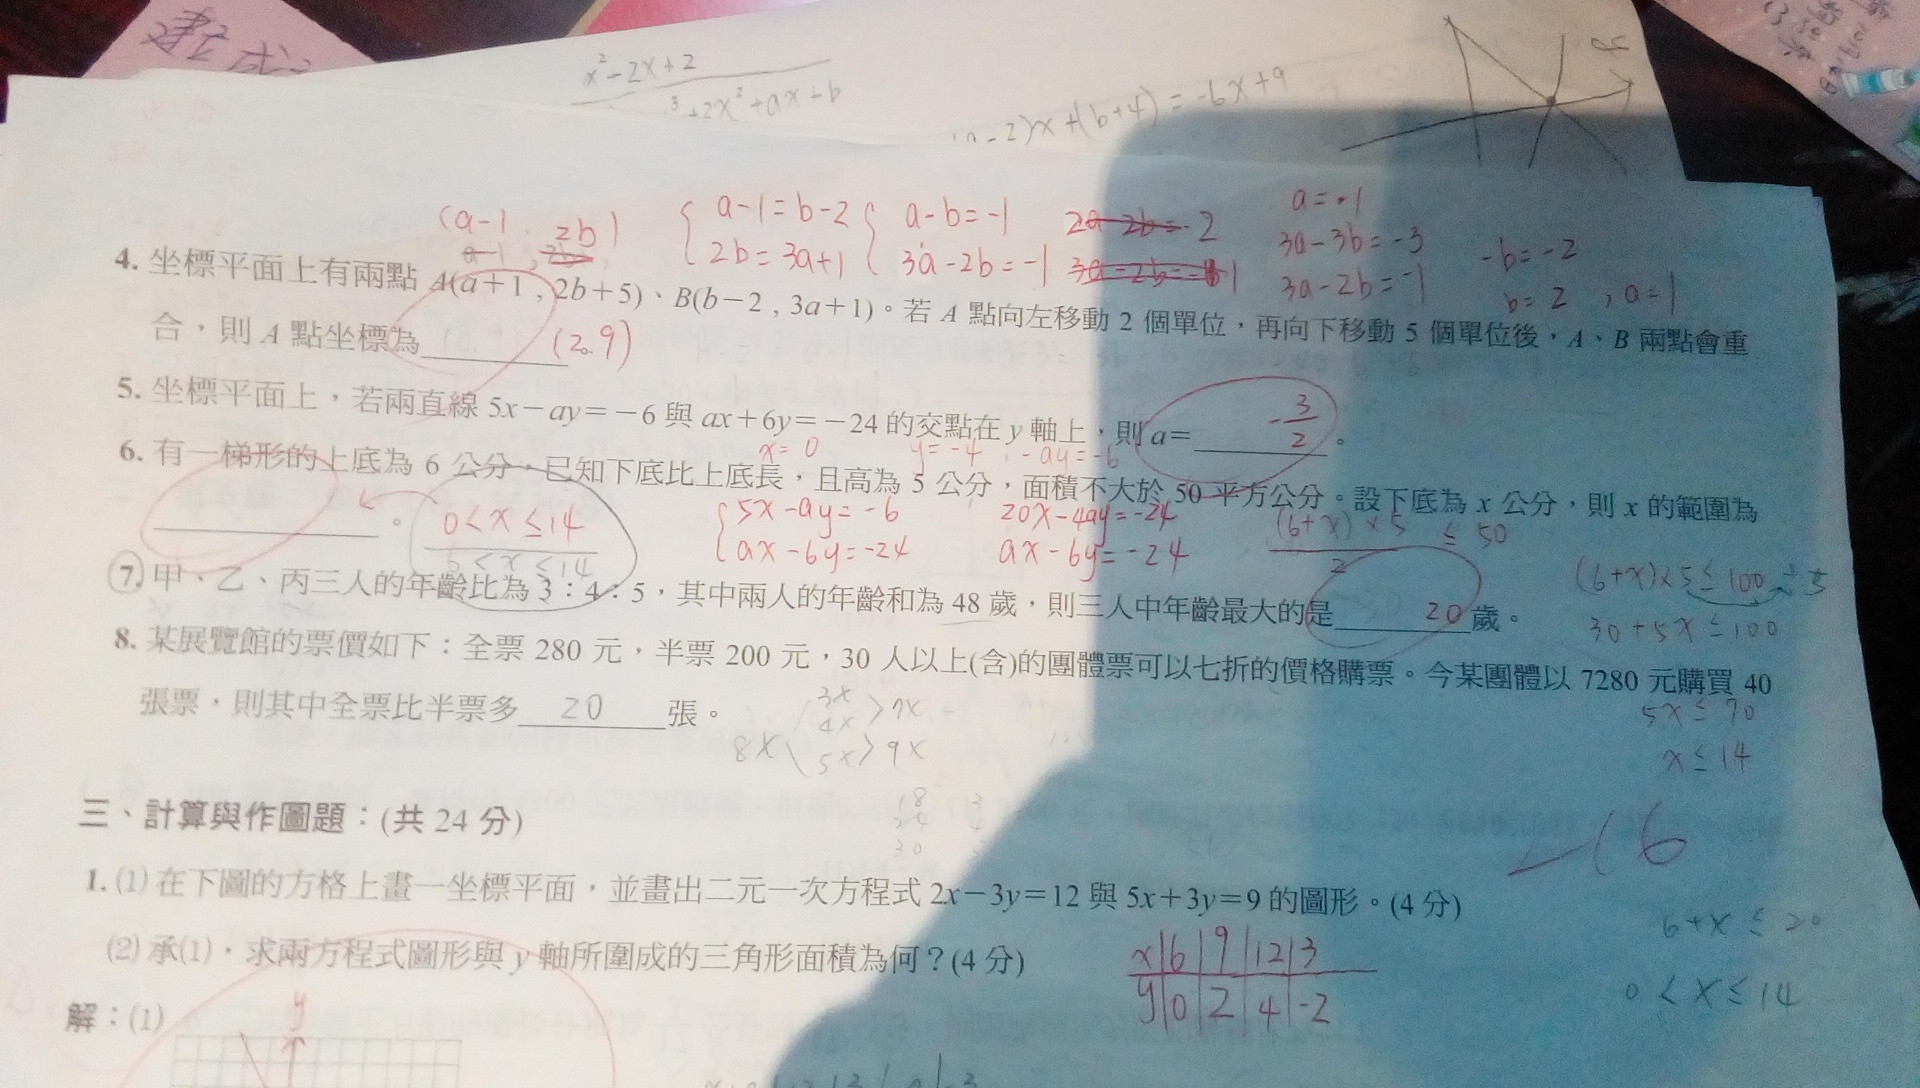 建成
x²-2x+2
³+2x²+ax+b
-2)x+(b+4)=-6x+9
y
(a-1, 2b)
{ a-1=b-2
2b=3a+1
{ a-b=-1
3a-2b=-1
2a-2b=-2
a=-1
3a-3b=-3
3a-2b=-1
-b=-2
b=2, a=1
4. 坐標平面上有兩點 A(a+1 , 2b+5)、B(b-2 , 3a+1)。若 A 點向左移動 2 個單位，再向下移動 5 個單位後，A、B 兩點會重
合，則 A 點坐標為 (2.9)
5. 坐標平面上，若兩直線 5x-ay=-6 與 ax+6y=-24 的交點在 y 軸上，則 a= -3/2 。
x=0 y=-4 -ay=-6
6. 有一梯形的上底為 6 公分，已知下底比上底長，且高為 5 公分，面積不大於 50 平方公分。設下底為 x 公分，則 x 的範圍為
。
0<x≤14
6<x≤14
{ 5x-ay=-6
ax-6y=-24
20x-4ay=-24
ax-6y=-24
(6+x)×5/2 ≤ 50
(6+x)×5≤100 ÷5
30+5x≤100
7. 甲、乙、丙三人的年齡比為 3：4：5，其中兩人的年齡和為 48 歲，則三人中年齡最大的是 20 歲。
8. 某展覽館的票價如下：全票 280 元，半票 200 元，30 人以上(含)的團體票可以七折的價格購票。今某團體以 7280 元購買 40
張票，則其中全票比半票多 20 張。
3x
4x > 7x
8x < 5x > 9x
5x≤70
x≤14
18 3
24 4
30
-16
三、計算與作圖題：(共 24 分)
1. (1) 在下圖的方格上畫一坐標平面，並畫出二元一次方程式 2x-3y=12 與 5x+3y=9 的圖形。(4 分)
(2) 承(1)，求兩方程式圖形與 y 軸所圍成的三角形面積為何？(4 分)
x|6|9|12|3
y|0|2|4|-2
6+x≤20
0<x≤14
解：(1)
y